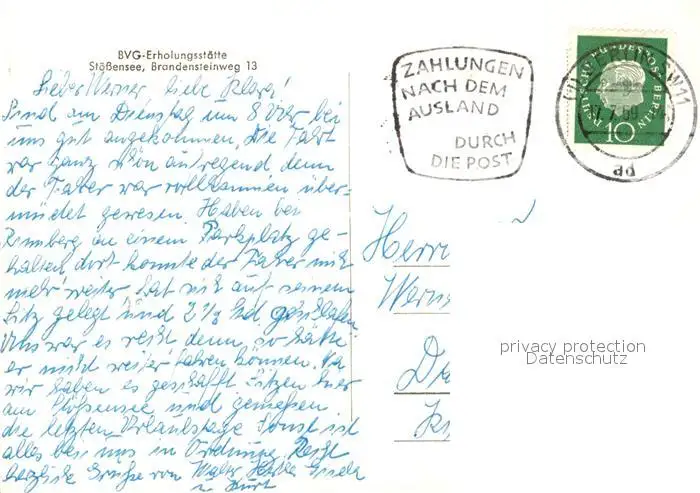 BVG-Erholungsstätte
Stößensee, Brandensteinweg 13
Lieber Werner, liebe Klara!
Sind am Dienstag um 8 Uhr bei
uns gut angekommen, die Fahrt
war ganz schön aufregend, denn
der Fahrer war vollkommen über-
müdet gewesen. Haben bei
an einem Parkplatz ge-
halten dort konnte der Fahrer nicht
mehr weiter hat sich auf seinem
Sitz gelegt und 2 1/2 Std. geschlafen
Uns war es recht denn so hätte
er nicht weiter fahren können. Na
wir haben es geschafft sitzen hier
am Stößensee und genießen
die letzten Urlaubstage sonst ist
alles bei uns in Ordnung. Recht
herzliche Grüße von Walter Gisela
u. Kurt
ZAHLUNGEN
NACH DEM
AUSLAND
DURCH
DIE POST
DEUTSCHE BUNDESPOST BERLIN
10
BERLIN SW11
ad
Herrn
Werne
privacy protection
Datenschutz